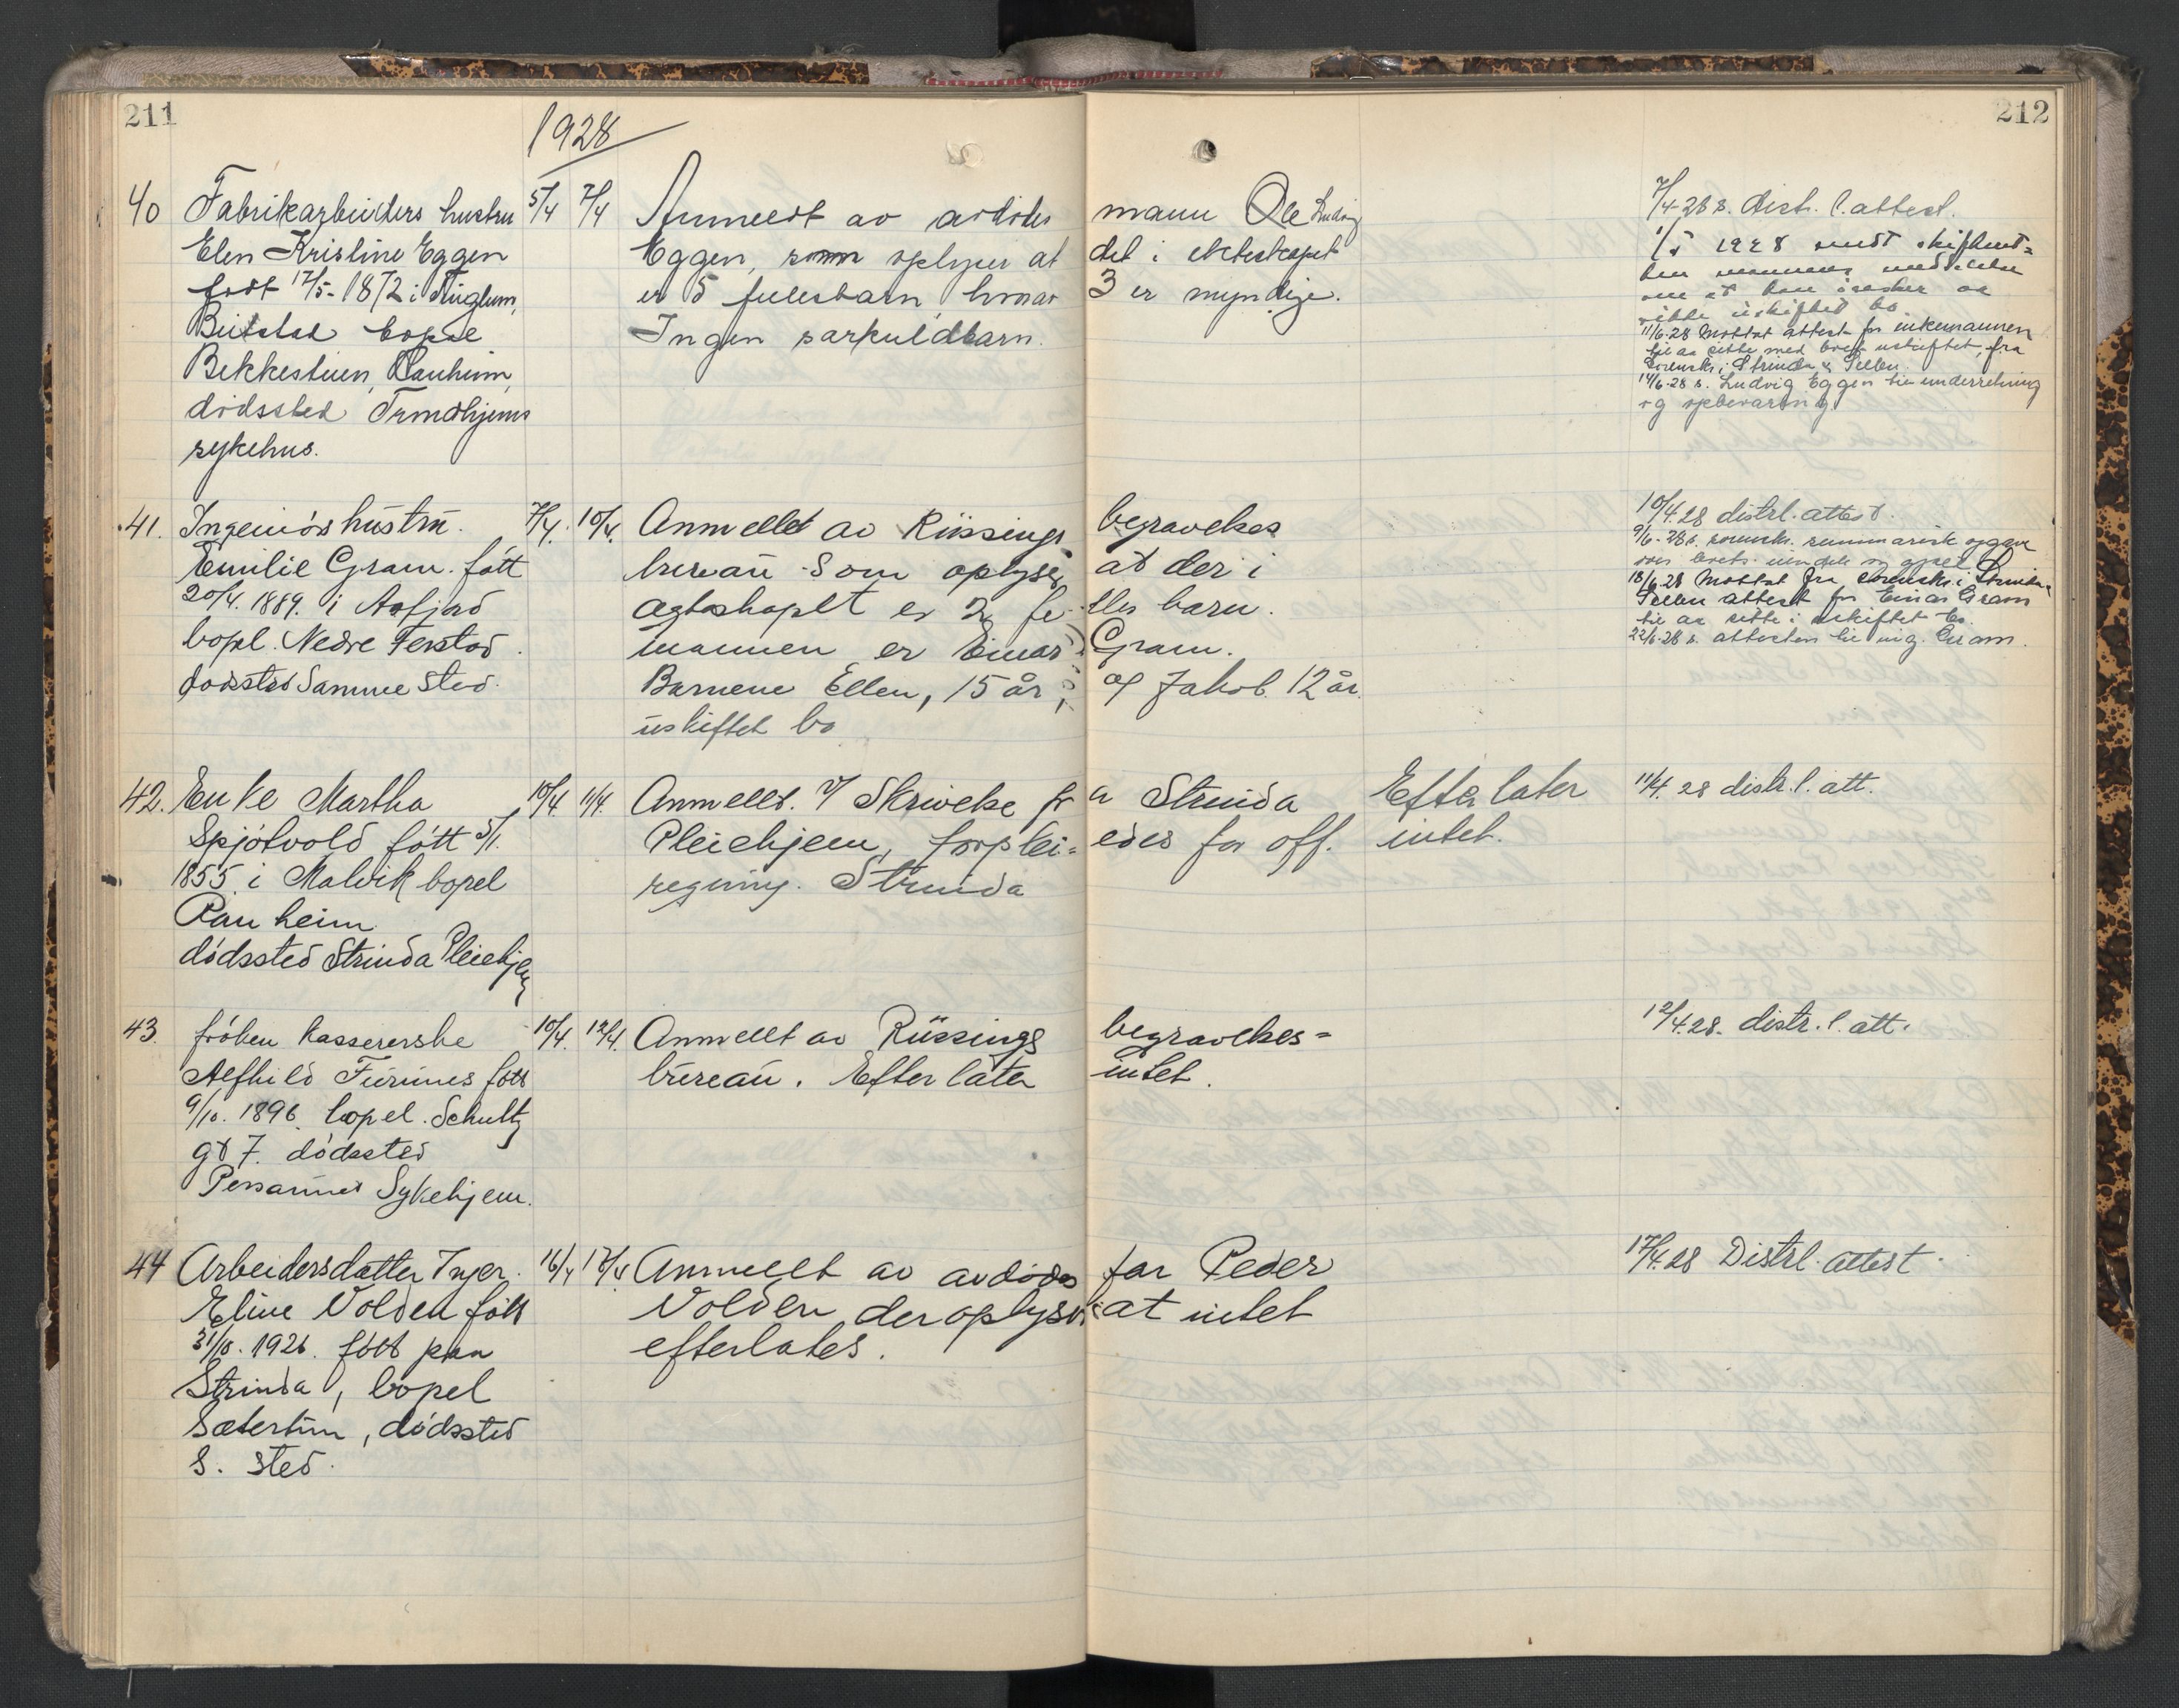 211
212
1928
40 Fabrikarbeiders hustru 5/4 7/4 Anmeldt av avdødes mann Ole Ludvig
Elen Kristine Eggen Eggen, som oplyser at det i ekteskapet
født 17/5-1872 i er 5 fellesbarn, hvorav 3 er myndige.
Beitstad bopel Ingen særkuldbarn.
Bekkestuen, Ranheim,
dødssted Trondhjems
sykehus.
7/4-28 s. distr. l. attest.
1/5 1928 sendt skifteret=
ten mannens meddelelse
om at han ønsker aa
sitte i uskiftet bo.
11/6-28 Mottat attest for enkemannen
til aa sitte med boet uskiftet, fra
Sorenskr. i Strinda & Selbu.
14/6-28 s. Ludvig Eggen til underretning
og opbevaring
41. Ingeniørs hustru. 7/4. 10/4. Anmeldt av Rüssings begravelses
Emilie Gram. fött bureau som oplyser at der i
20/4. 1889. i Aafjord ægteskapet er 2 fe- lles barn.
bopl. Nedre Ferstad. mannen er Einar Gram.
dødssted Samme Sted. Barnene Ellen, 15 år, og Jakob 12 år.
uskiftet bo
10/4.28 distrl. attest.
9/6-28 s. sorenskr. summarisk opgave
over boets eiendele og gjeld
18/6.28 Mottat fra sorenskr. i Strinda &
Selbu attest for Einar Gram
til aa sitte i uskiftet bo.
22/6-28 s. attesten til ing. Gram.
42. Enke Martha 10/4. 11/4. Anmeldt. v/ Skrivelse fr a Strinda Efterlater 11/4. 28 distr. l. att.
Spjøtvold fött 5/1. Pleiehjem, forplei= edes for off. intet.
1855 i Malvik bopel regning. Strinda
Ranheim
dødssted Strinda Pleiehjem
43. frøken kassererske 10/4. 12/4. Anmeldt av Rüssings begravelses= 12/4.28. distr. l. att.
Alfhild Furunes fött bureau. Efterlater intet.
9/10. 1896. bopel. Schultz
gt 7. dødssted
Personnes Sykehjem.
44 Arbeidersdatter Inger 16/4 17/4 Anmeldt av avdødes far Peder 17/4.28 Distrl. attest.
Eline Volden fött Volden der oplyser at intet
31/10. 1926. fött paa efterlates.
Strinda, bopel
Sætertun, dødssted
S. sted.